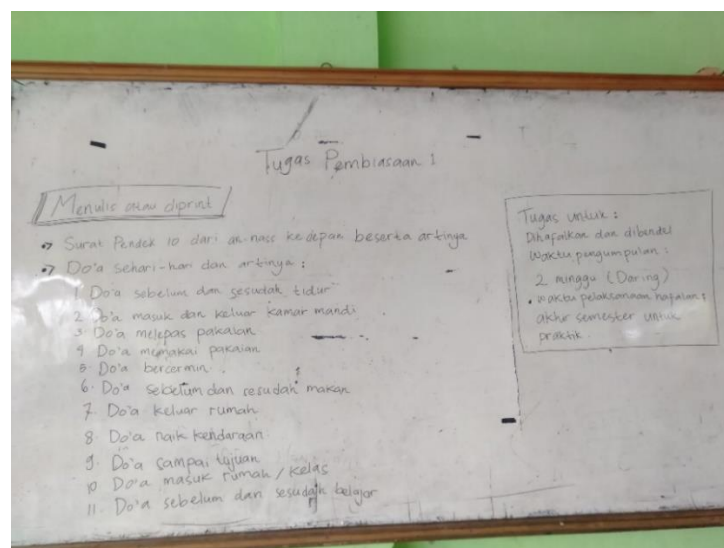 Tugas Pembiasaan 1
Menulis atau diprint
Surat Pendek 10 dari an-nass kedepan beserta artinya
Do'a sehari-hari dan artinya :
1. Do'a sebelum dan sesudah tidur
2. Do'a masuk dan keluar kamar mandi
3. Do'a melepas pakaian
4 Do'a memakai pakaian
5. Do'a bercermin
6. Do'a sebelum dan sesudah makan
7. Do'a keluar rumah
8. Do'a naik kendaraan
9. Do'a sampai tujuan
10 Do'a masuk rumah / kelas
11. Do'a sebelum dan sesudah belajar
Tugas untuk :
Dihafalkan dan dibendel
Waktu pengumpulan :
2 minggu (Daring)
• waktu pelaksanaan hapalan :
akhir semester untuk
praktik.